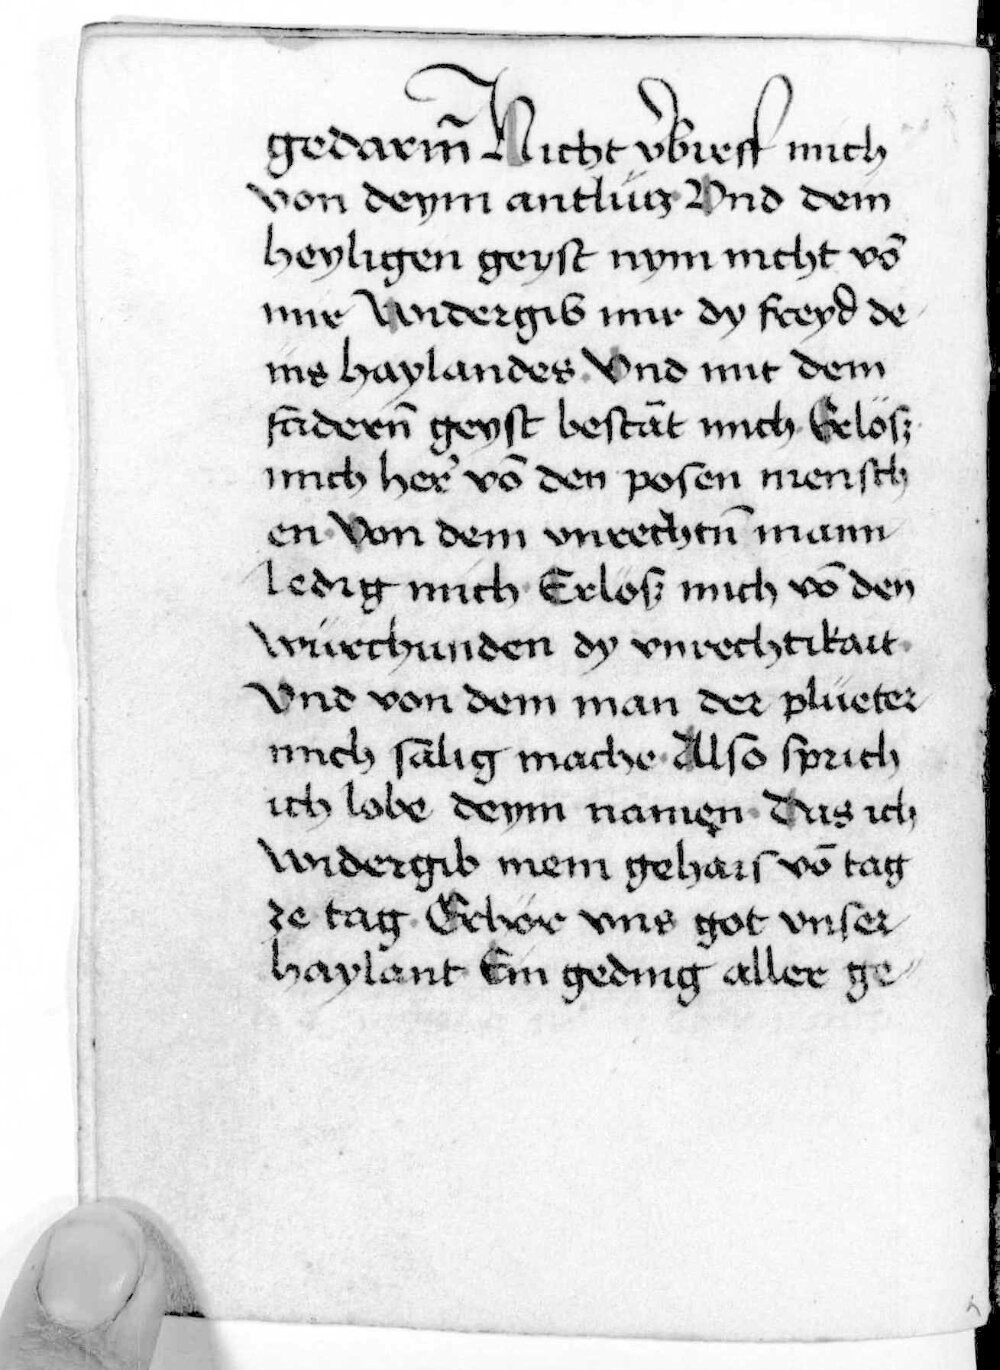 gedarm̄ Nicht v̉birff mich
von deym antlücz Vnd dem
heyligen geyst nym nicht vō
mir Widergib mir dy freyd de
ins haylandes. Vnd mit dem
geyst bestāt mich. Erlösz
mich her̉ vō den posen mensch
en. Von dem vnrechtn̄ mann
ledig mich. Erlösz mich vō den
würchunden dy vnrechtikait.
Vnd von dem man der plüeter
mich sälig mache. Also sprich
ich lobe deym namen. Das ich
widergib mein gehais vō tag
ze tag. Erhör vns got vnser
haylant Ein geding aller ge